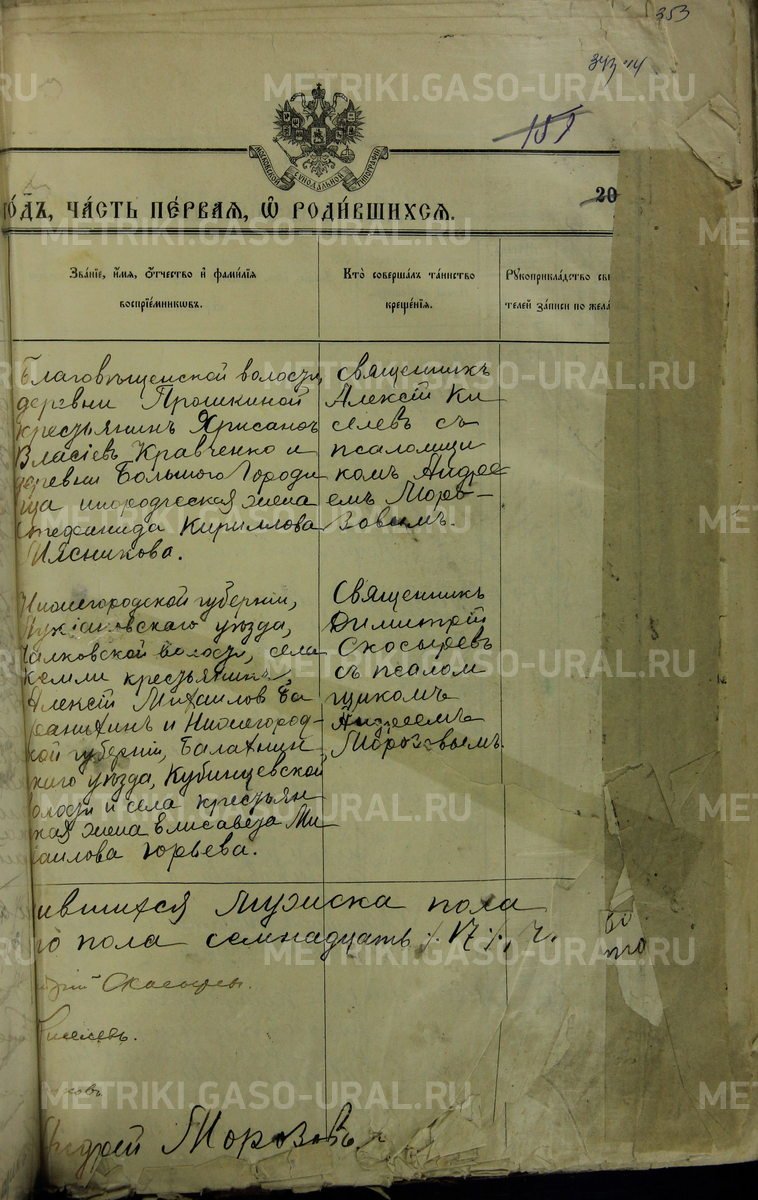 353
343 14
METRIKI.GASO-URAL.RU
151
МОСКОВСКОЙ СѴНОДАЛЬНОЙ ТИПОГРАФІИ
20
ГО́ДЪ, ЧА́СТЬ ПЕ́РВАЯ, Ѡ РОДИ́ВШИХСЯ.
Зва́нїе, и́мя, о́тчество и҆ фами́лїя воспрїе́мникѡвъ.
Кто̀ соверша́лъ та́инство креще́нїя.
Рꙋкоприкла́дство сви
телей за́писи по жела
Благовѣщенской волости,
деревни Прошкиной
крестьянинъ Хрисанѳъ
Власіевъ Кравченко и
деревни Большого Городи
ща инородческая жена
Стефанида Кириллова
Мясникова.
Священникъ
Алексій Ки
селевъ съ
псаломщи
комъ Андре
емъ Моро-
зовымъ.
Нижегородской губерніи,
уѣзда,
волости, села
Кемли крестьянинъ
Алексій Михаиловъ Ба
и Нижегород-
ской губерніи, Балахнин
скаго уѣзда, Кубинцевской
волости и села крестьян
ская жена Елисавета Ми
хаилова Юрьева.
Священникъ
Димитрій
Скосыревъ
съ псалом
щикомъ
Андреемъ
Морозовымъ.
ившихся мужска пола
го пола семнадцать ·/. 17 ·/., ч.
итрій Скосырев
Киселевъ.
ковъ
Андрей Морозовъ